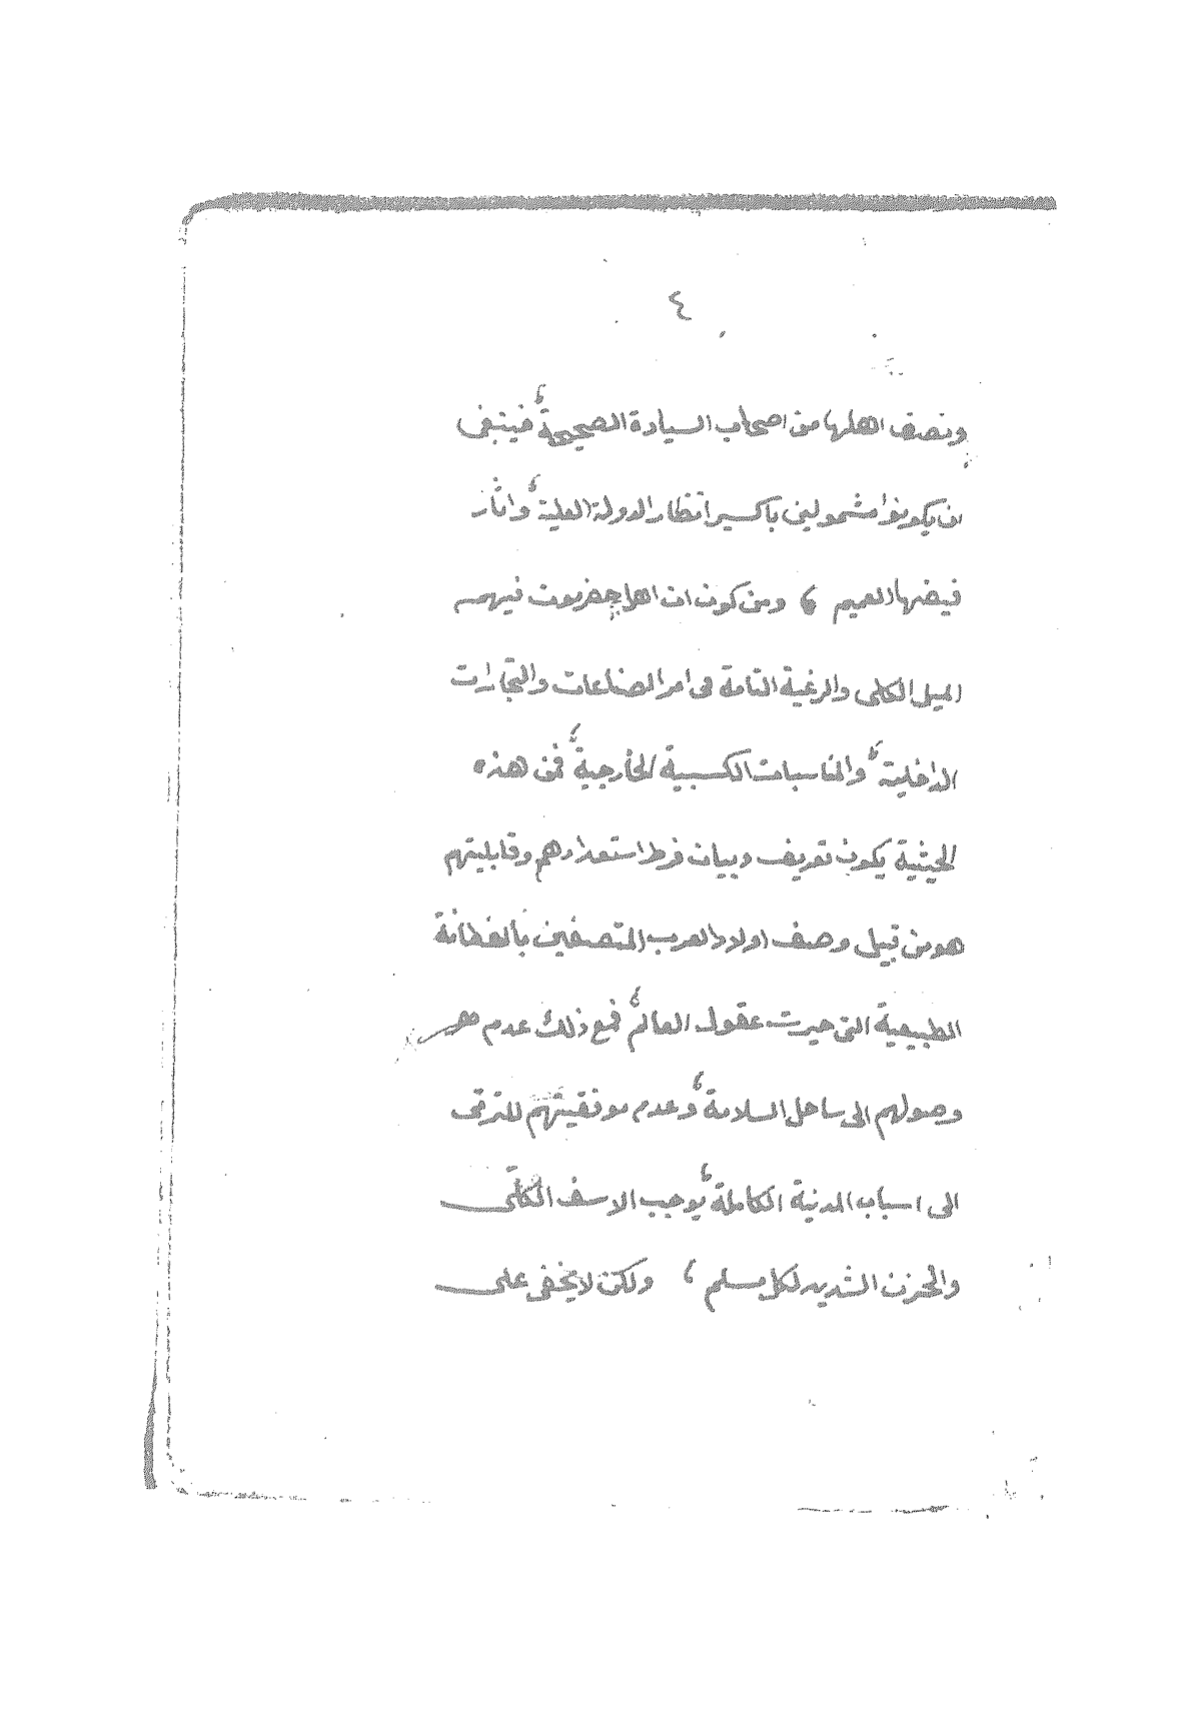 ٤
ونصف اهلها من اصحاب السيادة الصحيحة، فينبغى
ان يكونوا مشمولين باكسير انظار الدولة العلية، واثار
فيضها العميم ، ومن كون ان اهل حضرموت فيهم
الميل الكلى والرغبة التامة فى امر الصناعات والتجارات
الداخلية، والمناسبات الكسبية الخارجية، فمن هذه
الحيثية يكون تعريف وبيان فرط استعدادهم وقابليتهم
هو من قبيل وصف اولاد العرب المتصفين بالفطانة
الطبيعية التى حيرت عقول العالم، فمع ذلك عدم
وصولهم الى ساحل السلامة، وعدم موفقيتهم للترقى
الى اسباب المدنية الكاملة، يوجب الاسف الكلّى
والحزن الشديد لكل مسلم ، ولكن لا يخفى على